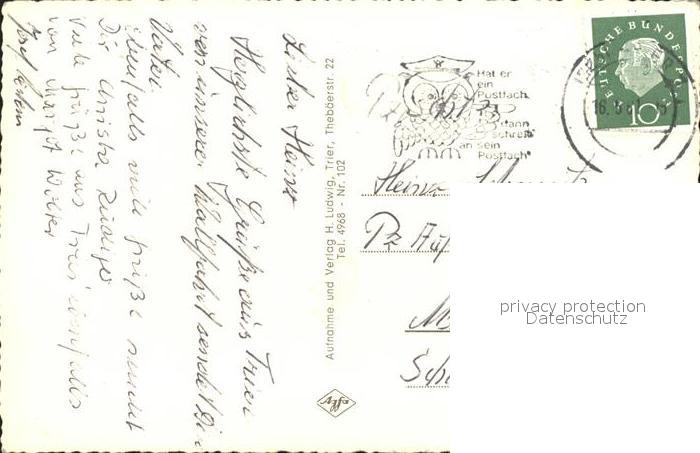 Lieber Heinz
Herzlichste Grüße aus Trier
von unserer Wallfahrt sendet Dir
Vater
ebenfalls viele Grüße sendet
Dir Christa Rüdiger
Viele Grüße aus Trier ebenfalls
von Margot Wolter
Josef
Aufnahme und Verlag H. Ludwig, Trier, Thebäerstr. 22
Tel. 4968 - Nr. 102
Agfa
Hat er
ein
Postfach,
dann
schreib'
an sein
Postfach"
DEUTSCHE BUNDESPOST
10
Heinz
Pz
privacy protection
Datenschutz